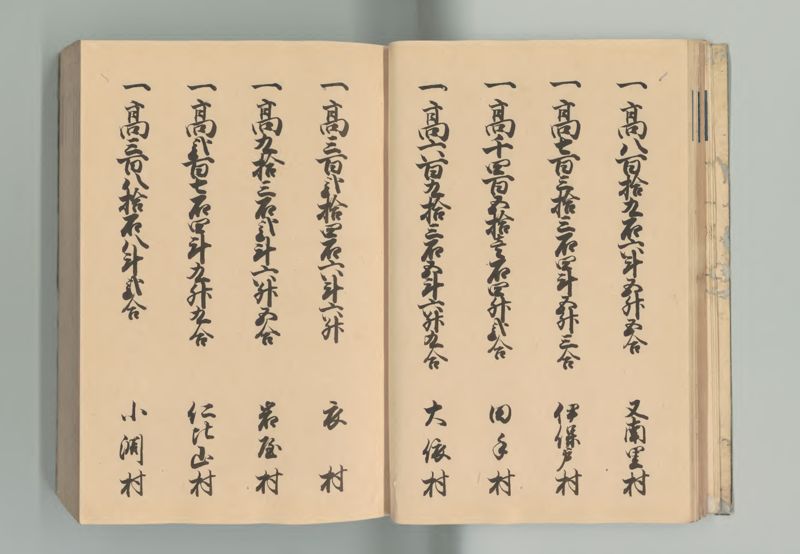 一高八百拾九石六斗五升五合 又南里村
一高七百三拾三石四斗五升三合 伊保戸村
一高千四百五拾壱石四升弐合 田手村
一高六百九拾三石五斗六升九合 大俣村
一高三百弐拾四石六斗六升 衣村
一高九拾三石弐斗六升五合 岩屋村
一高弐百七石四斗九升九合 仁比山村
一高三百八拾石八斗弐合 小渕村